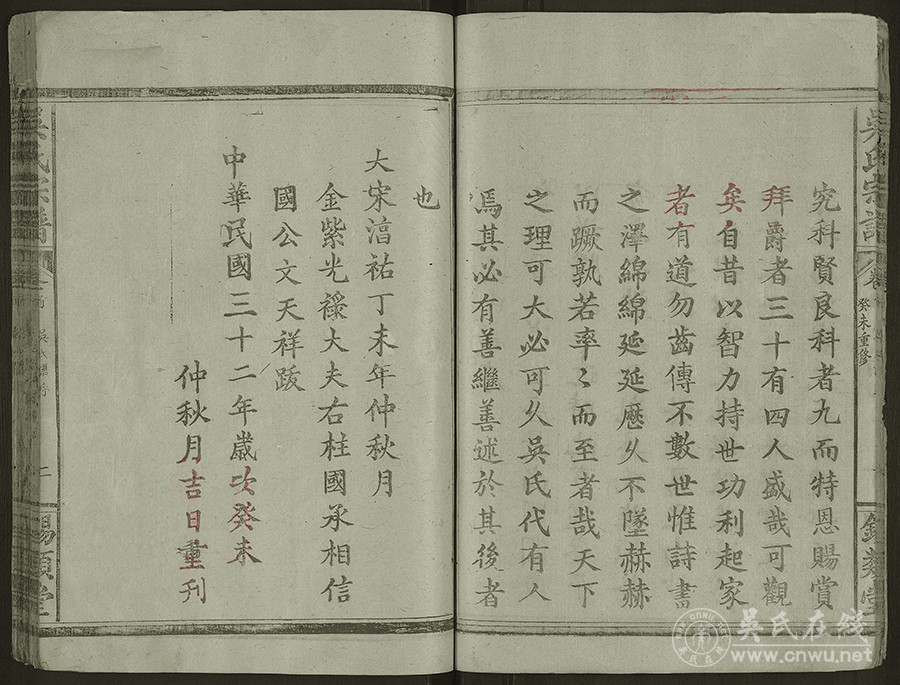 究科賢良科者九而特恩賜賞
拜爵者三十有四人盛哉可觀
矣自昔以智力持世功利起家
者有道勿齒傳不數世惟詩書
之澤綿綿延延歷久不墜赫赫
而蹶孰若率〻而至者哉天下
之理可大必可久吳氏代有人
焉其必有善繼善述於其後者
也
大宋淯祐丁未年仲秋月
金紫光祿大夫右柱國承相信
國公文天祥跋
中華民國三十二年歲次癸未
仲秋月吉日重刊
吳氏宗譜
卷
癸未重修
錫類堂
吳氏宗譜
二
錫類堂
吳氏在线
www.cnwu.net